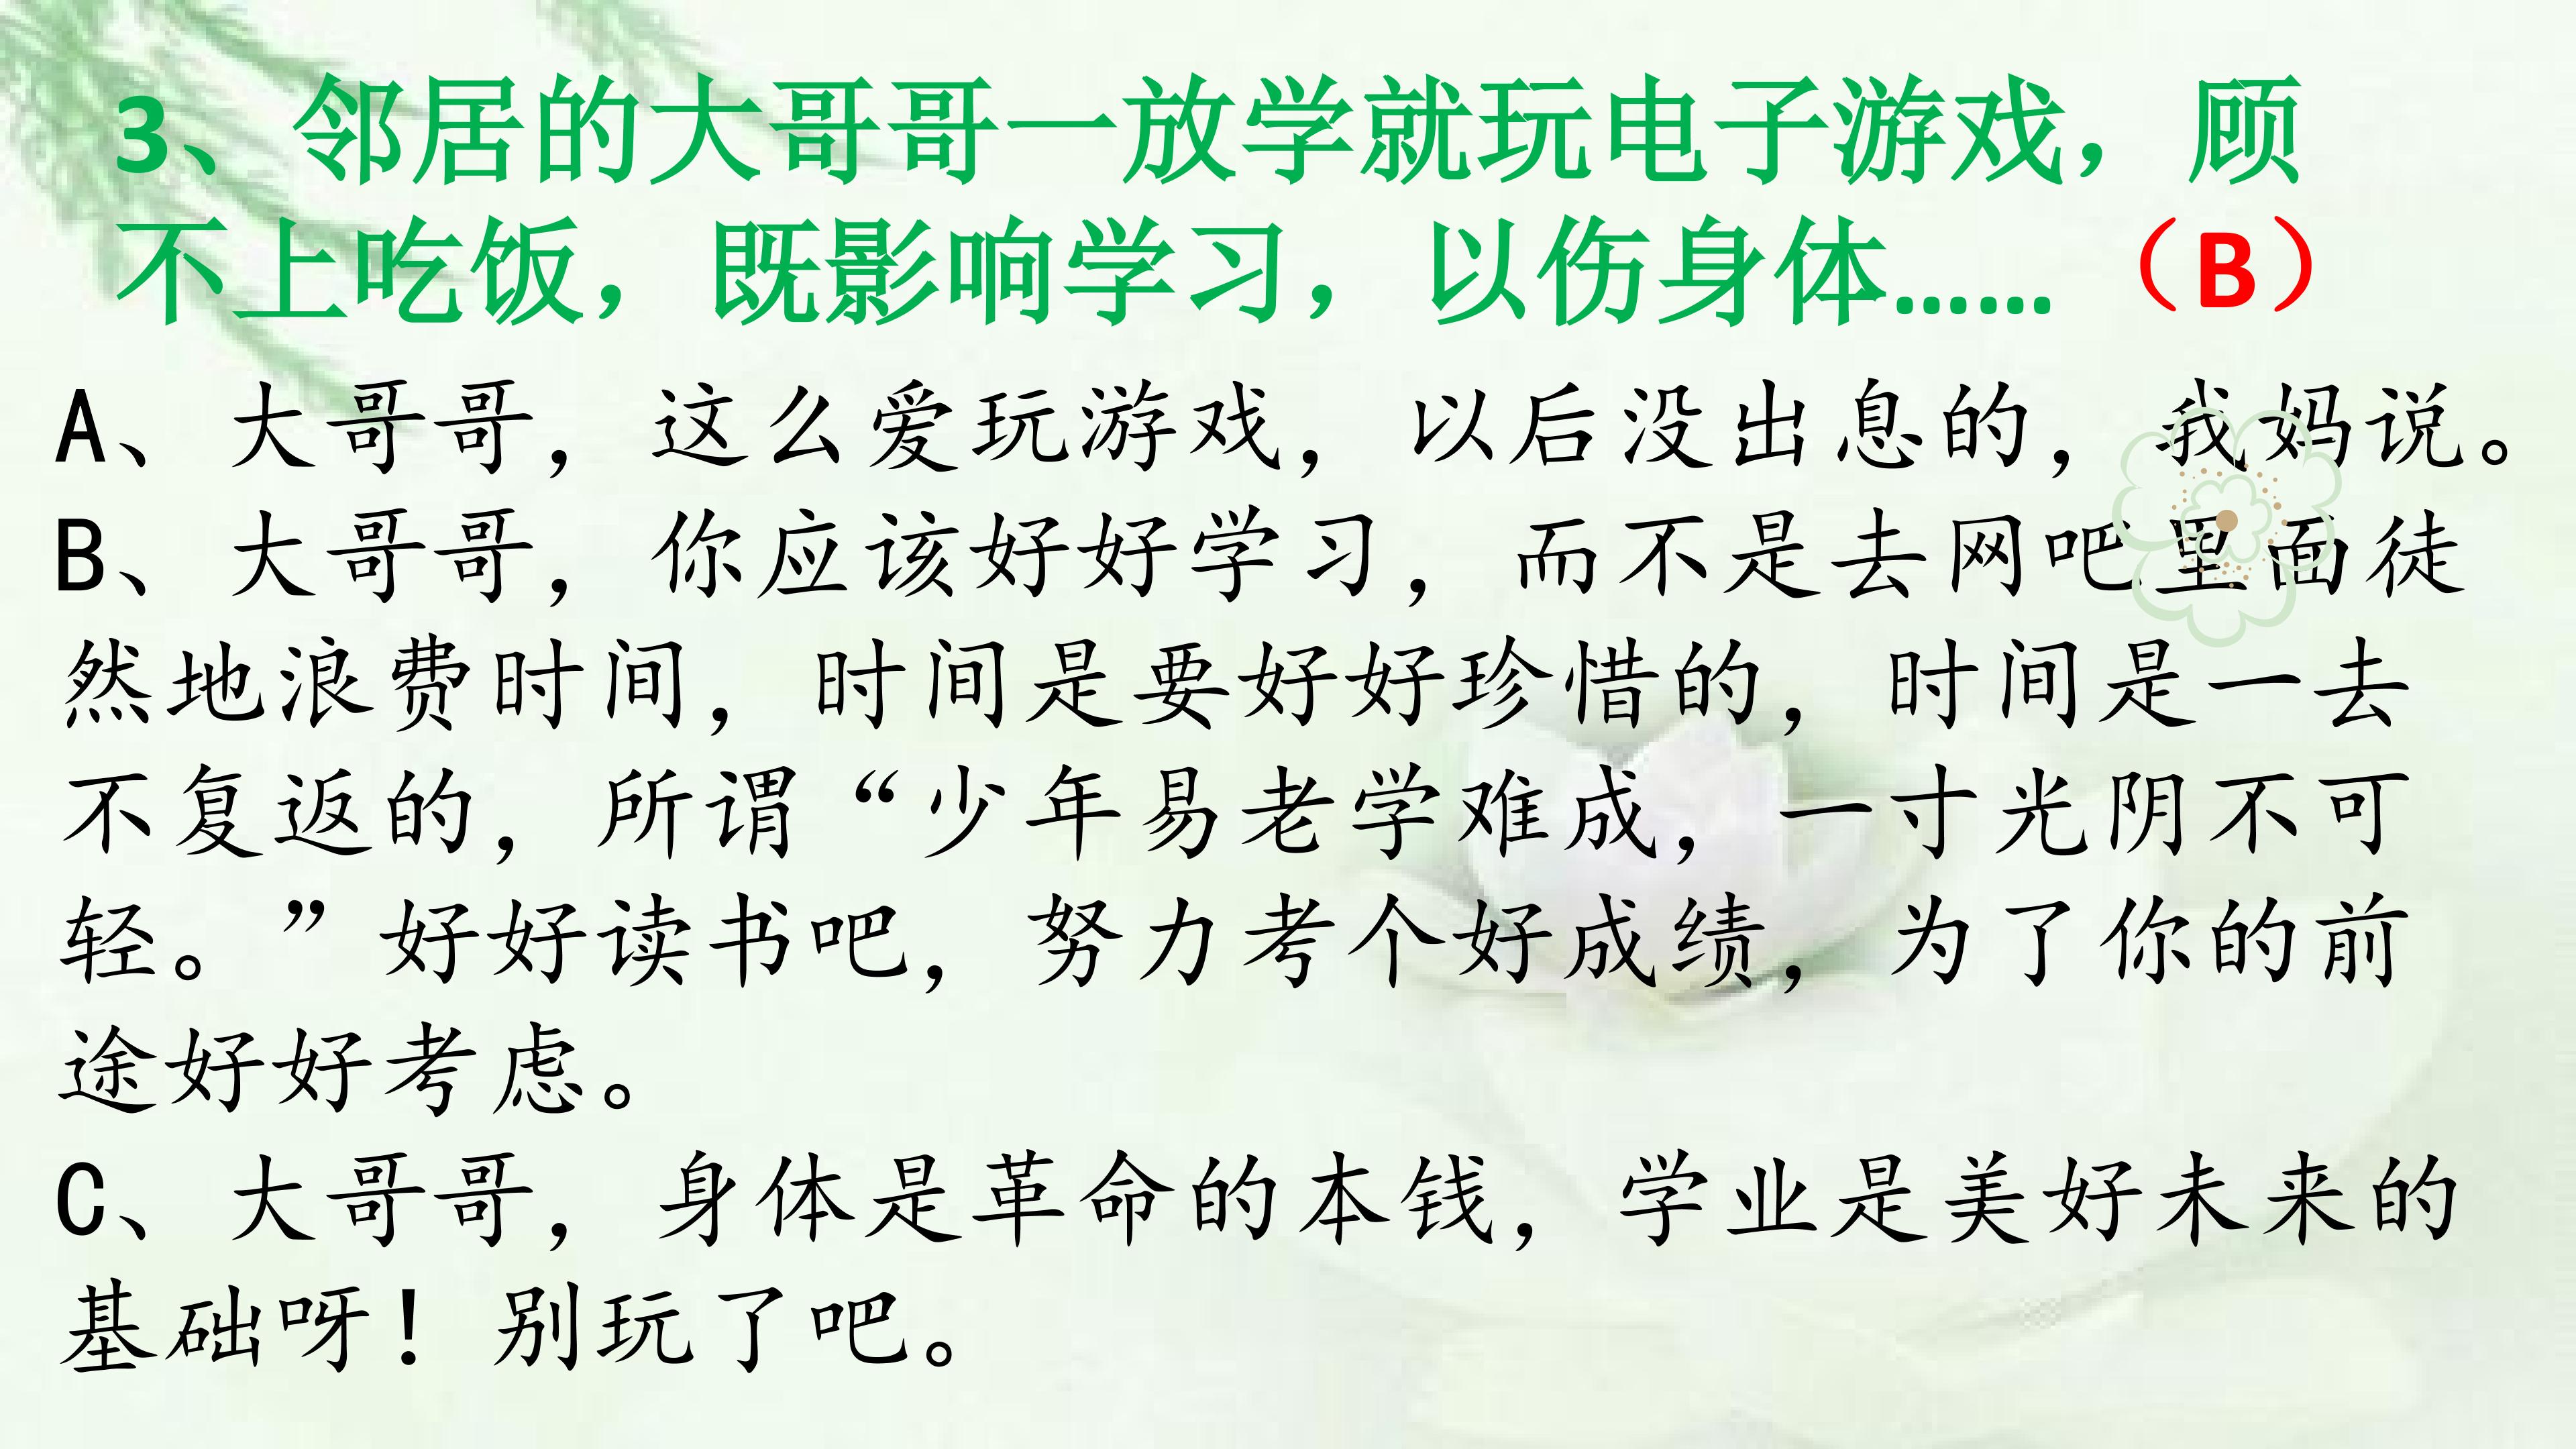 3、邻居的大哥哥一放学就玩电子游戏，顾
不上吃饭，既影响学习，以伤身体……（B）
A、大哥哥，这么爱玩游戏，以后没出息的，我妈说。
B、大哥哥，你应该好好学习，而不是去网吧里面徒
然地浪费时间，时间是要好好珍惜的，时间是一去
不复返的，所谓“少年易老学难成，一寸光阴不可
轻。”好好读书吧，努力考个好成绩，为了你的前
途好好考虑。
C、大哥哥，身体是革命的本钱，学业是美好未来的
基础呀！别玩了吧。